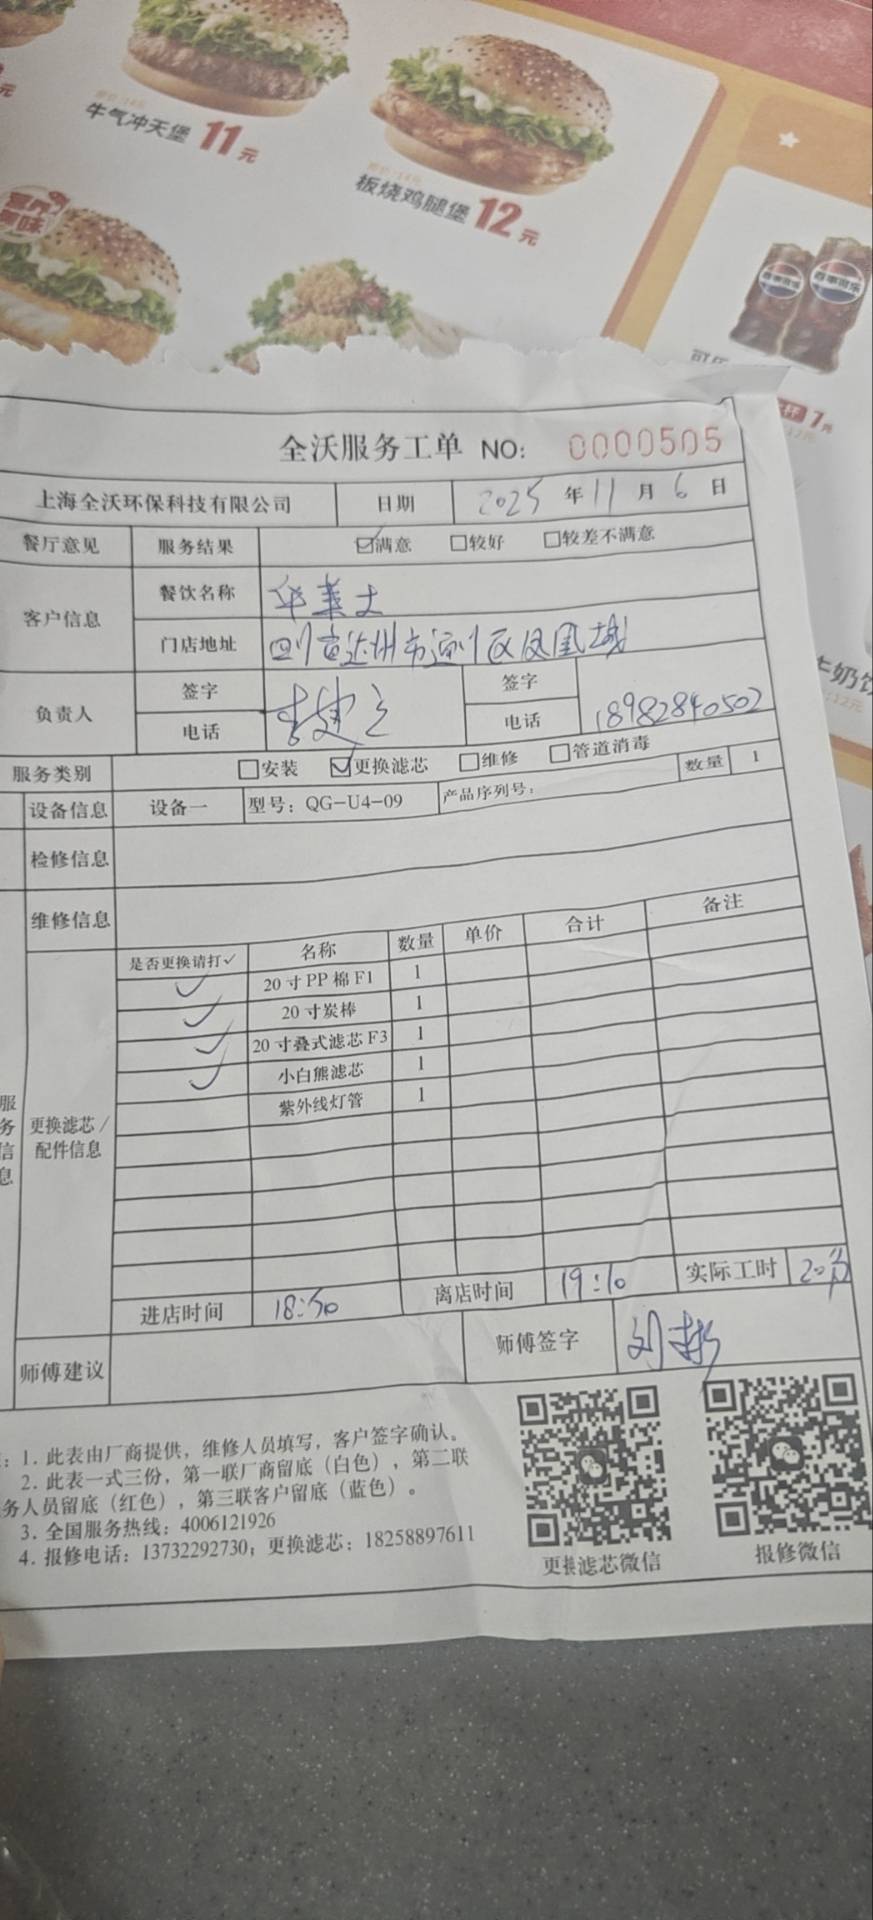 牛气冲天堡 11元
板烧鸡腿堡 12元
元
百事可乐
杯 1元
牛奶饮
全沃服务工单 NO: 0000505
上海全沃环保科技有限公司 日期 2025年11月6日
餐厅意见 服务结果 ☑满意 □较好 □较差不满意
客户信息 餐饮名称 华莱士
门店地址 四川省达州市通川区凤凰城
负责人 签字 签字
电话 电话 18982840502
服务类别 □安装 ☑更换滤芯 □维修 □管道消毒
设备信息 设备一 型号：QG-U4-09 产品序列号： 数量 1
检修信息
维修信息
更换滤芯/配件信息
是否更换请打✓ 名称 数量 单价 合计 备注
✓ 20寸PP棉F1 1
✓ 20寸炭棒 1
✓ 20寸叠式滤芯F3 1
✓ 小白熊滤芯 1
紫外线灯管 1
服务信息
进店时间 18:50 离店时间 19:10 实际工时 20分
师傅建议 师傅签字 刘彬
：1. 此表由厂商提供，维修人员填写，客户签字确认。
2. 此表一式三份，第一联厂商留底（白色），第二联
务人员留底（红色），第三联客户留底（蓝色）。
3. 全国服务热线：4006121926
4. 报修电话：13732292730；更换滤芯：18258897611
更换滤芯微信 报修微信